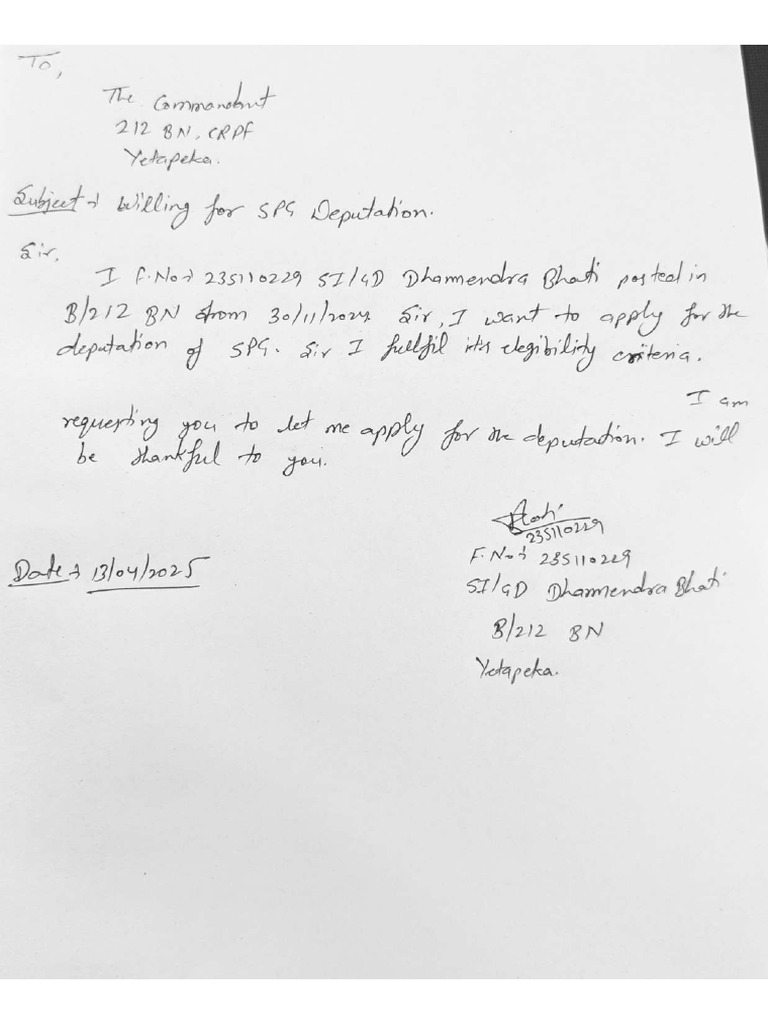 To,
The Commandant
212 BN, CRPF
Yetapeka.
Subject:→ Willing for SPG Deputation.
Sir,
I F.No:→ 235110229 SI/GD Dharmendra Bhati posted in
B/212 BN from 30/11/2024. Sir, I want to apply for the
deputation of SPG. Sir I fullfil it's elegibility criteria.
I am
requesting you to let me apply for the deputation. I will
be thankful to you.
235110229
F.No:→ 235110229
SI/GD Dharmendra Bhati
B/212 BN
Yetapeka.
Date:→ 13/04/2025